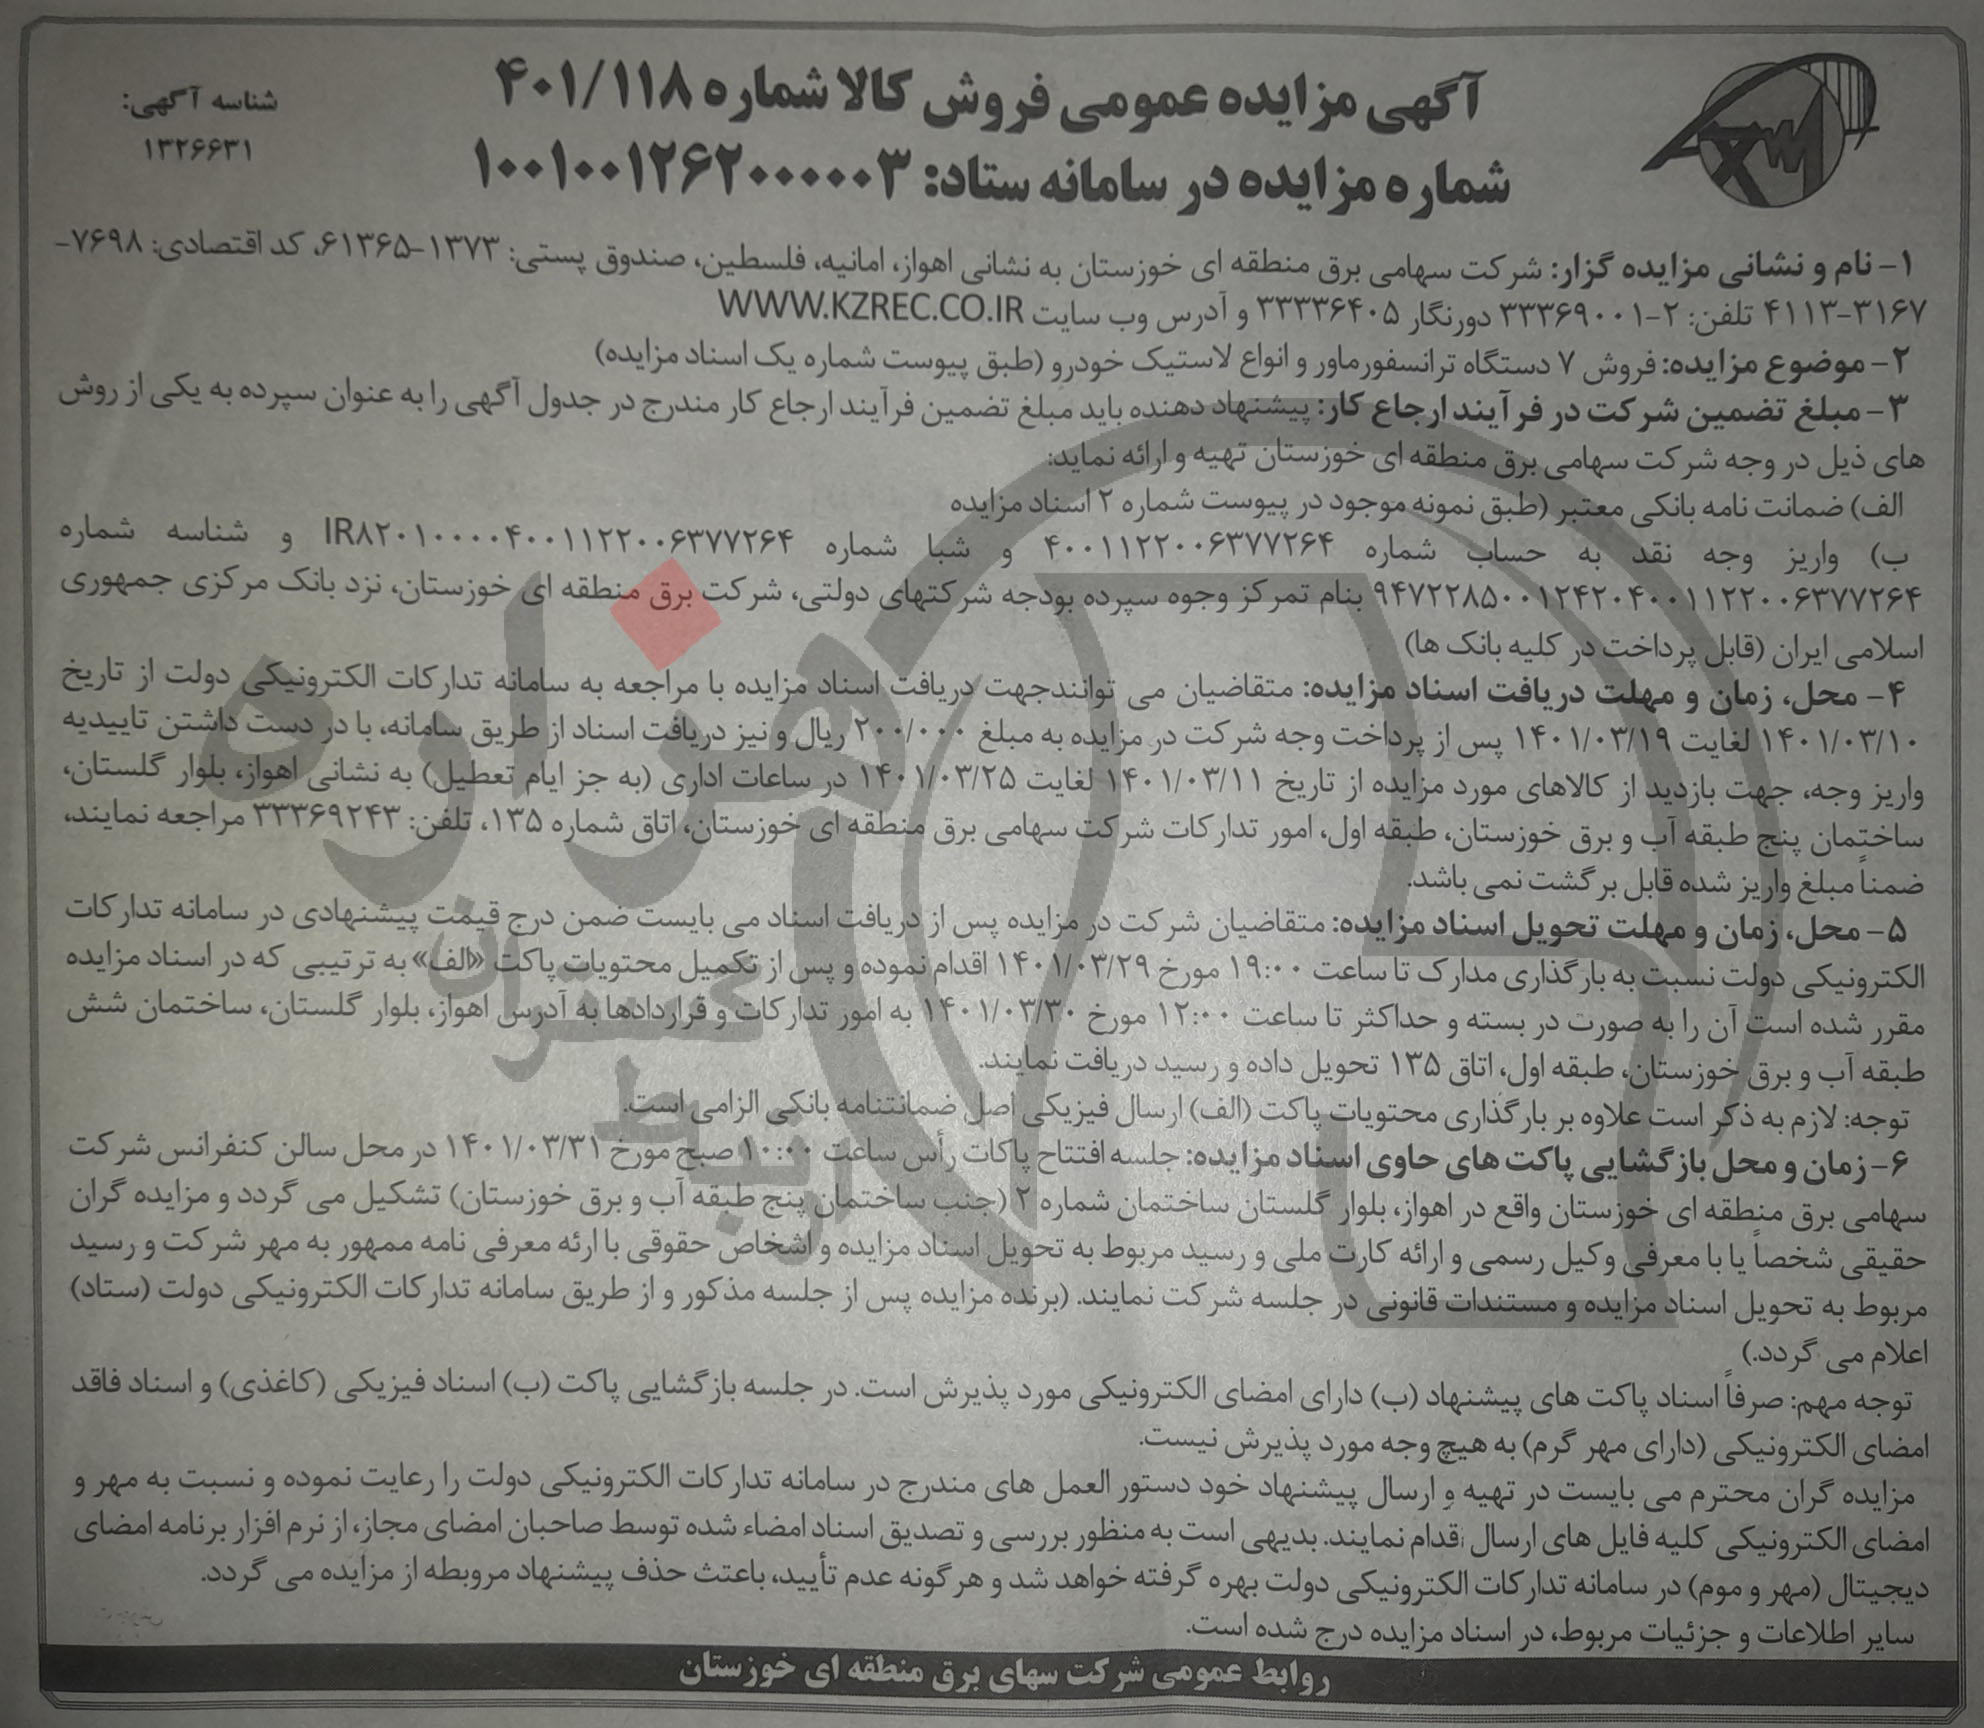 آگهی مزایده عمومی فروش کالا شماره ۴۰۱/۱۱۸
شماره مزایده در سامانه ستاد: ۱۰۰۱۰۰۱۲۶۲۰۰۰۰۰۳
شناسه آگهی:
۱۳۲۶۶۳۱
۱- نام و نشانی مزایده گزار: شرکت سهامی برق منطقه ای خوزستان به نشانی اهواز، امانیه، فلسطین، صندوق پستی: ۱۳۷۳-۶۱۳۶۵، کد اقتصادی: ۷۶۹۸-
۴۱۱۳-۳۱۶۷ تلفن: ۲-۳۳۳۶۹۰۰۱ دورنگار ۳۳۳۳۶۴۰۵ و آدرس وب سایت WWW.KZREC.CO.IR
۲- موضوع مزایده: فروش ۷ دستگاه ترانسفورماور و انواع لاستیک خودرو (طبق پیوست شماره یک اسناد مزایده)
۳- مبلغ تضمین شرکت در فرآیند ارجاع کار: پیشنهاد دهنده باید مبلغ تضمین فرآیند ارجاع کار مندرج در جدول آگهی را به عنوان سپرده به یکی از روش
های ذیل در وجه شرکت سهامی برق منطقه ای خوزستان تهیه و ارائه نماید:
الف) ضمانت نامه بانکی معتبر (طبق نمونه موجود در پیوست شماره ۲ اسناد مزایده
ب) واریز وجه نقد به حساب شماره ۴۰۰۱۱۲۲۰۰۶۳۷۷۲۶۴ و شبا شماره IR۸۲۰۱۰۰۰۰۴۰۰۱۱۲۲۰۰۶۳۷۷۲۶۴ و شناسه شماره
۹۴۷۲۲۸۵۰۰۱۲۴۲۰۴۰۰۱۱۲۲۰۰۶۳۷۷۲۶۴ بنام تمرکز وجوه سپرده بودجه شرکتهای دولتی، شرکت برق منطقه ای خوزستان، نزد بانک مرکزی جمهوری
اسلامی ایران (قابل پرداخت در کلیه بانک ها)
۴- محل، زمان و مهلت دریافت اسناد مزایده: متقاضیان می توانندجهت دریافت اسناد مزایده با مراجعه به سامانه تدارکات الکترونیکی دولت از تاریخ
۱۴۰۱/۰۳/۱۰ لغایت ۱۴۰۱/۰۳/۱۹ پس از پرداخت وجه شرکت در مزایده به مبلغ ۲۰۰/۰۰۰ ریال و نیز دریافت اسناد از طریق سامانه، با در دست داشتن تاییدیه
واریز وجه، جهت بازدید از کالاهای مورد مزایده از تاریخ ۱۴۰۱/۰۳/۱۱ لغایت ۱۴۰۱/۰۳/۲۵ در ساعات اداری (به جز ایام تعطیل) به نشانی اهواز، بلوار گلستان،
ساختمان پنج طبقه آب و برق خوزستان، طبقه اول، امور تدارکات شرکت سهامی برق منطقه ای خوزستان، اتاق شماره ۱۳۵، تلفن: ۳۳۳۶۹۲۴۳ مراجعه نمایند،
ضمناً مبلغ واریز شده قابل برگشت نمی باشد.
۵- محل، زمان و مهلت تحویل اسناد مزایده: متقاضیان شرکت در مزایده پس از دریافت اسناد می بایست ضمن درج قیمت پیشنهادی در سامانه تدارکات
الکترونیکی دولت نسبت به بارگذاری مدارک تا ساعت ۱۹:۰۰ مورخ ۱۴۰۱/۰۳/۲۹ اقدام نموده و پس از تکمیل محتویات پاکت «الف» به ترتیبی که در اسناد مزایده
مقرر شده است آن را به صورت در بسته و حداکثر تا ساعت ۱۲:۰۰ مورخ ۱۴۰۱/۰۳/۳۰ به امور تدارکات و قراردادها به آدرس اهواز، بلوار گلستان، ساختمان شش
طبقه آب و برق خوزستان، طبقه اول، اتاق ۱۳۵ تحویل داده و رسید دریافت نمایند.
توجه: لازم به ذکر است علاوه بر بارگذاری محتویات پاکت (الف) ارسال فیزیکی اصل ضمانتنامه بانکی الزامی است.
۶- زمان و محل بازگشایی پاکت های حاوی اسناد مزایده: جلسه افتتاح پاکات رأس ساعت ۱۰:۰۰ صبح مورخ ۱۴۰۱/۰۳/۳۱ در محل سالن کنفرانس شرکت
سهامی برق منطقه ای خوزستان واقع در اهواز، بلوار گلستان ساختمان شماره ۲ (جنب ساختمان پنج طبقه آب و برق خوزستان) تشکیل می گردد و مزایده گران
حقیقی شخصاً یا با معرفی وکیل رسمی و ارائه کارت ملی و رسید مربوط به تحویل اسناد مزایده و اشخاص حقوقی با ارئه معرفی نامه ممهور به مهر شرکت و رسید
مربوط به تحویل اسناد مزایده و مستندات قانونی در جلسه شرکت نمایند. (برنده مزایده پس از جلسه مذکور و از طریق سامانه تدارکات الکترونیکی دولت (ستاد)
اعلام می گردد.)
توجه مهم: صرفاً اسناد پاکت های پیشنهاد (ب) دارای امضای الکترونیکی مورد پذیرش است. در جلسه بازگشایی پاکت (ب) اسناد فیزیکی (کاغذی) و اسناد فاقد
امضای الکترونیکی (دارای مهر گرم) به هیچ وجه مورد پذیرش نیست.
مزایده گران محترم می بایست در تهیه و ارسال پیشنهاد خود دستور العمل های مندرج در سامانه تدارکات الکترونیکی دولت را رعایت نموده و نسبت به مهر و
امضای الکترونیکی کلیه فایل های ارسال اقدام نمایند. بدیهی است به منظور بررسی و تصدیق اسناد امضاء شده توسط صاحبان امضای مجاز، از نرم افزار برنامه امضای
دیجیتال (مهر و موم) در سامانه تدارکات الکترونیکی دولت بهره گرفته خواهد شد و هرگونه عدم تأیید، باعتث حذف پیشنهاد مروبطه از مزایده می گردد.
سایر اطلاعات و جزئیات مربوط، در اسناد مزایده درج شده است.
روابط عمومی شرکت سهای برق منطقه ای خوزستان